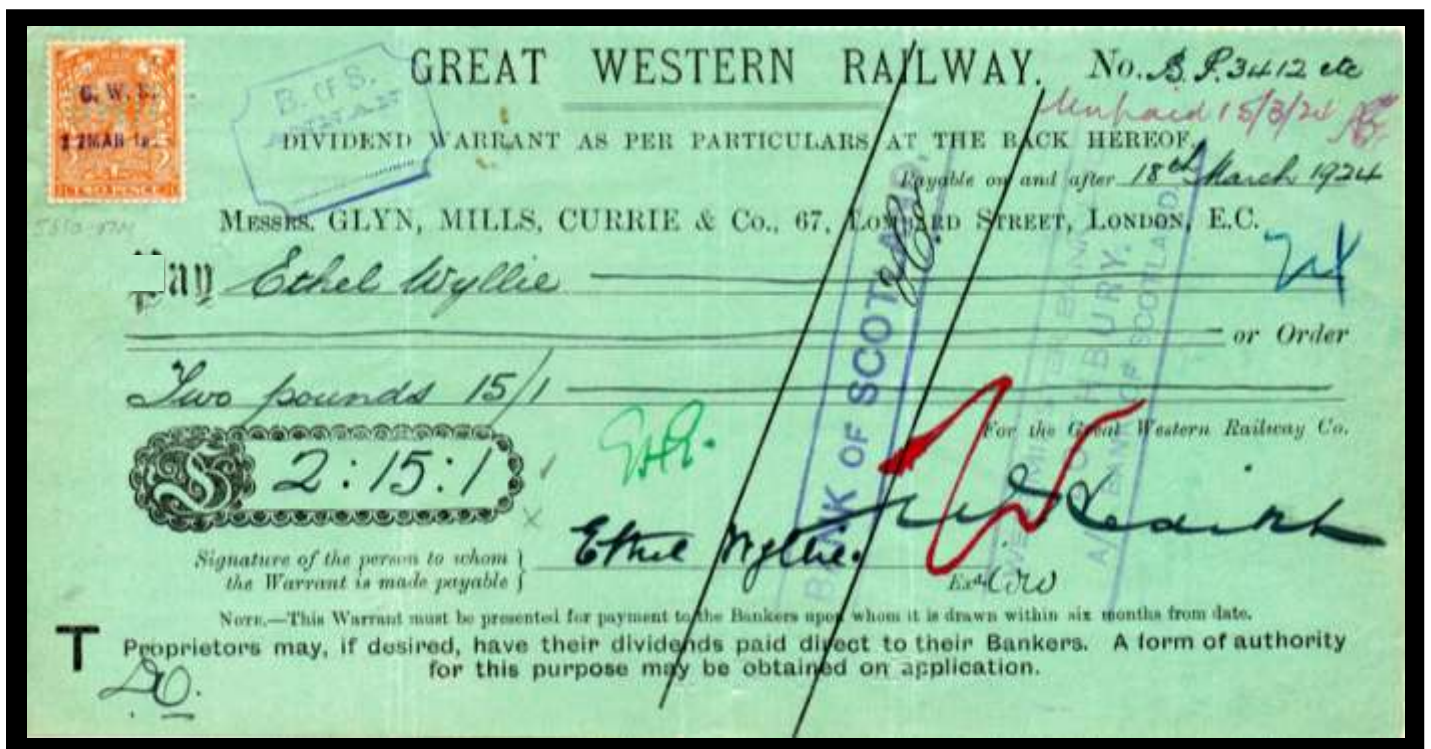 GREAT WESTERN RAILWAY. No. B.P. 3412 etc
Unpaid 15/3/24
DIVIDEND WARRANT AS PER PARTICULARS AT THE BACK HEREOF.
Payable on and after 18th March 1924
MESSRS. GLYN, MILLS, CURRIE & Co., 67, LOMBARD STREET, LONDON, E.C.
Pay Ethel Wyllie
or Order
Two pounds 15/1
For the Great Western Railway Co.
£ 2:15:1
Ethel Wyllie.
Signature of the person to whom
the Warrant is made payable
Exd.
NOTE.—This Warrant must be presented for payment to the Bankers upon whom it is drawn within six months from date.
T Proprietors may, if desired, have their dividends paid direct to their Bankers. A form of authority
for this purpose may be obtained on application.
G. W. R.
TWO PENCE
B. OF S.
BANK OF SCOTLAND
BANK OF SCOTLAND